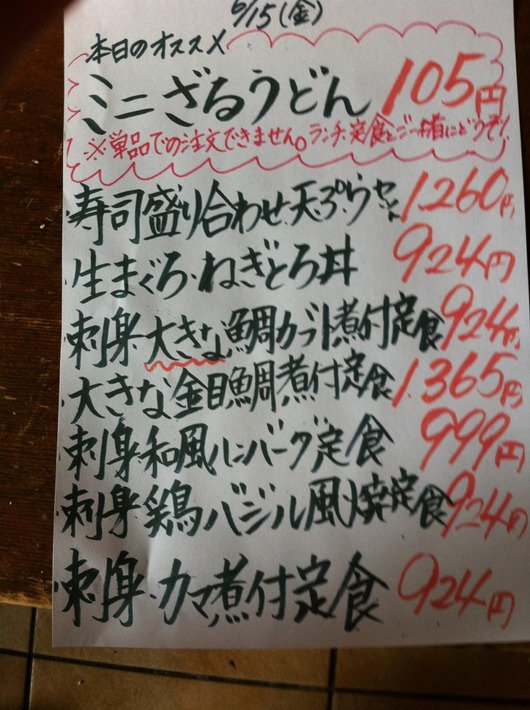 6/15(金)
本日のオススメ
ミニざるうどん 105円
※単品での注文できません。ランチ、定食とご一緒にどうぞ!
寿司盛り合わせ天ぷらセット 1260円
生まぐろ・ねぎとろ丼 924円
刺身・大きな鯛カブト煮付定食 924円
大きな金目鯛煮付定食 1365円
刺身・和風ハンバーグ定食 999円
刺身・鶏バジル風焼定食 924円
刺身・カマ煮付定食 924円